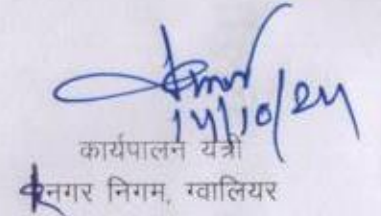 14/10/24
कार्यपालन यंत्री
नगर निगम, ग्वालियर